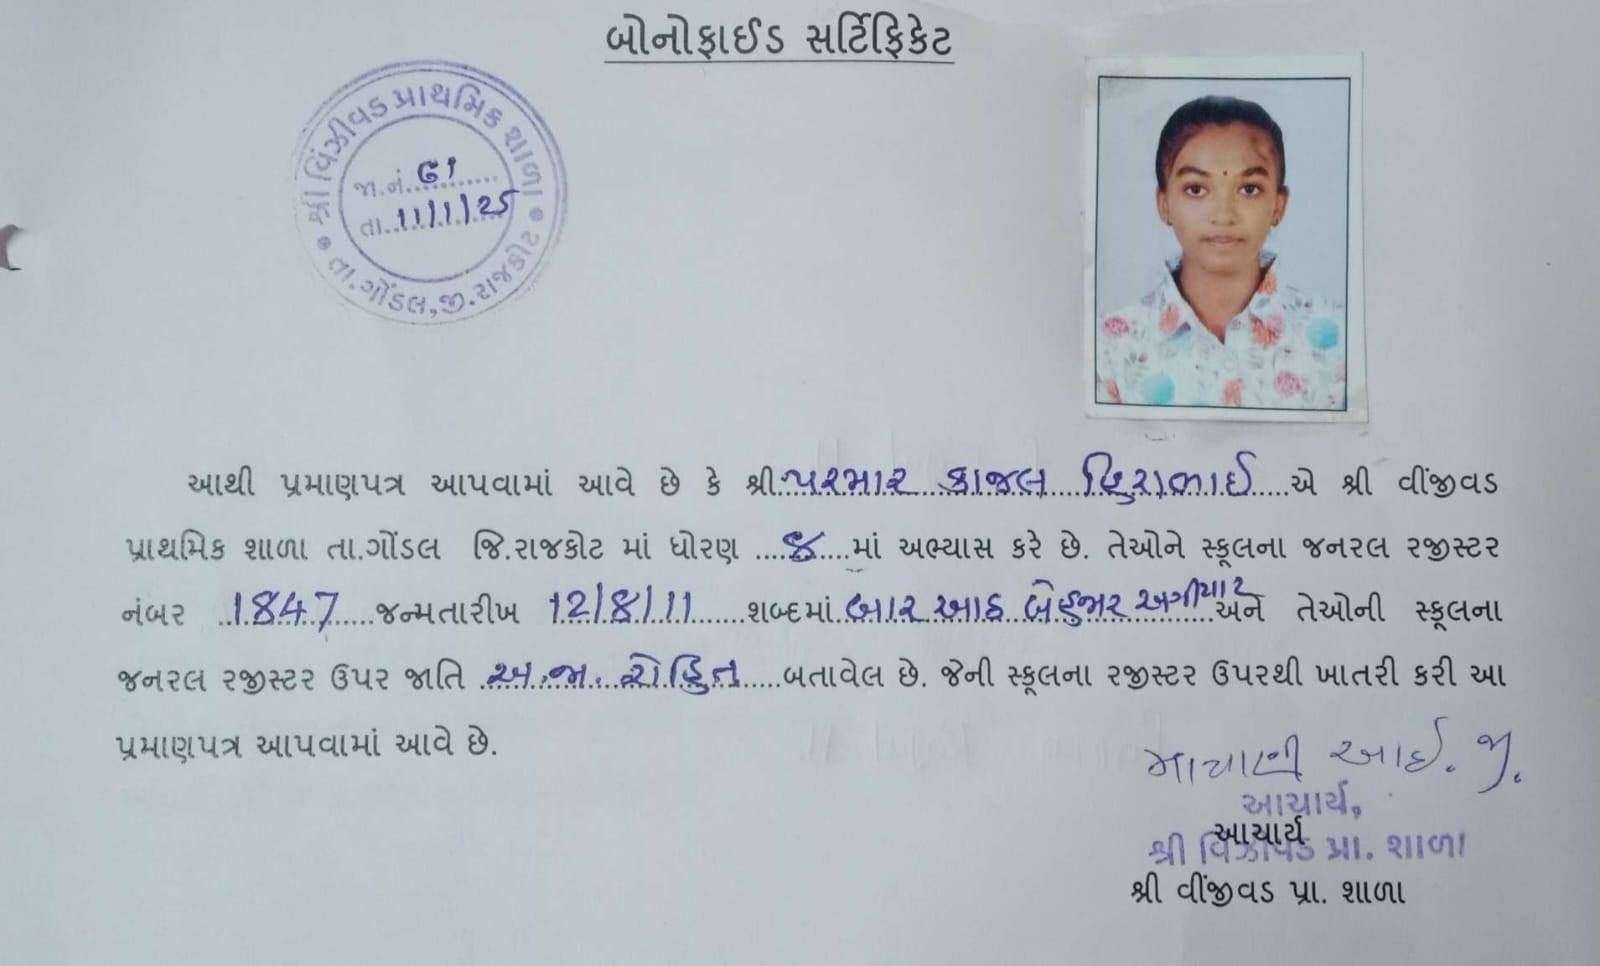 બોનોફાઈડ સર્ટિફિકેટ
શ્રી વિંઝીવડ પ્રાથમિક શાળા
જા.નં. ૯૧
તા. 11/1/25
તા.ગોંડલ,જી.રાજકોટ
આથી પ્રમાણપત્ર આપવામાં આવે છે કે શ્રી પરમાર કાજલ હિરાભાઈ એ શ્રી વીંજીવડ
પ્રાથમિક શાળા તા.ગોંડલ જિ.રાજકોટ માં ધોરણ ૪ માં અભ્યાસ કરે છે. તેઓને સ્કૂલના જનરલ રજીસ્ટર
નંબર 1847 જન્મતારીખ 12/8/11 શબ્દમાં બાર આઠ બેહજાર અગીયાર અને તેઓની સ્કૂલના
જનરલ રજીસ્ટર ઉપર જાતિ અ.જા. રોહિત બતાવેલ છે. જેની સ્કૂલના રજીસ્ટર ઉપરથી ખાતરી કરી આ
પ્રમાણપત્ર આપવામાં આવે છે.
માયાણી આઈ. જી.
આચાર્ય,
આચાર્ય
શ્રી વિંઝીવડ પ્રા. શાળા
શ્રી વીંજીવડ પ્રા. શાળા